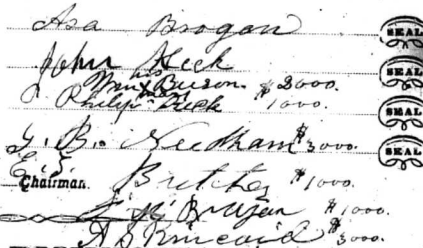 Asa Brogan SEAL
John Heck SEAL
his
Wm X Burson $3000.
J. Philip Peck 1000. SEAL
G. B. Needham $3000. SEAL
E. T.
Chairman. Britches $1000.
Brogan $1000.
A S Kincaid $3000.